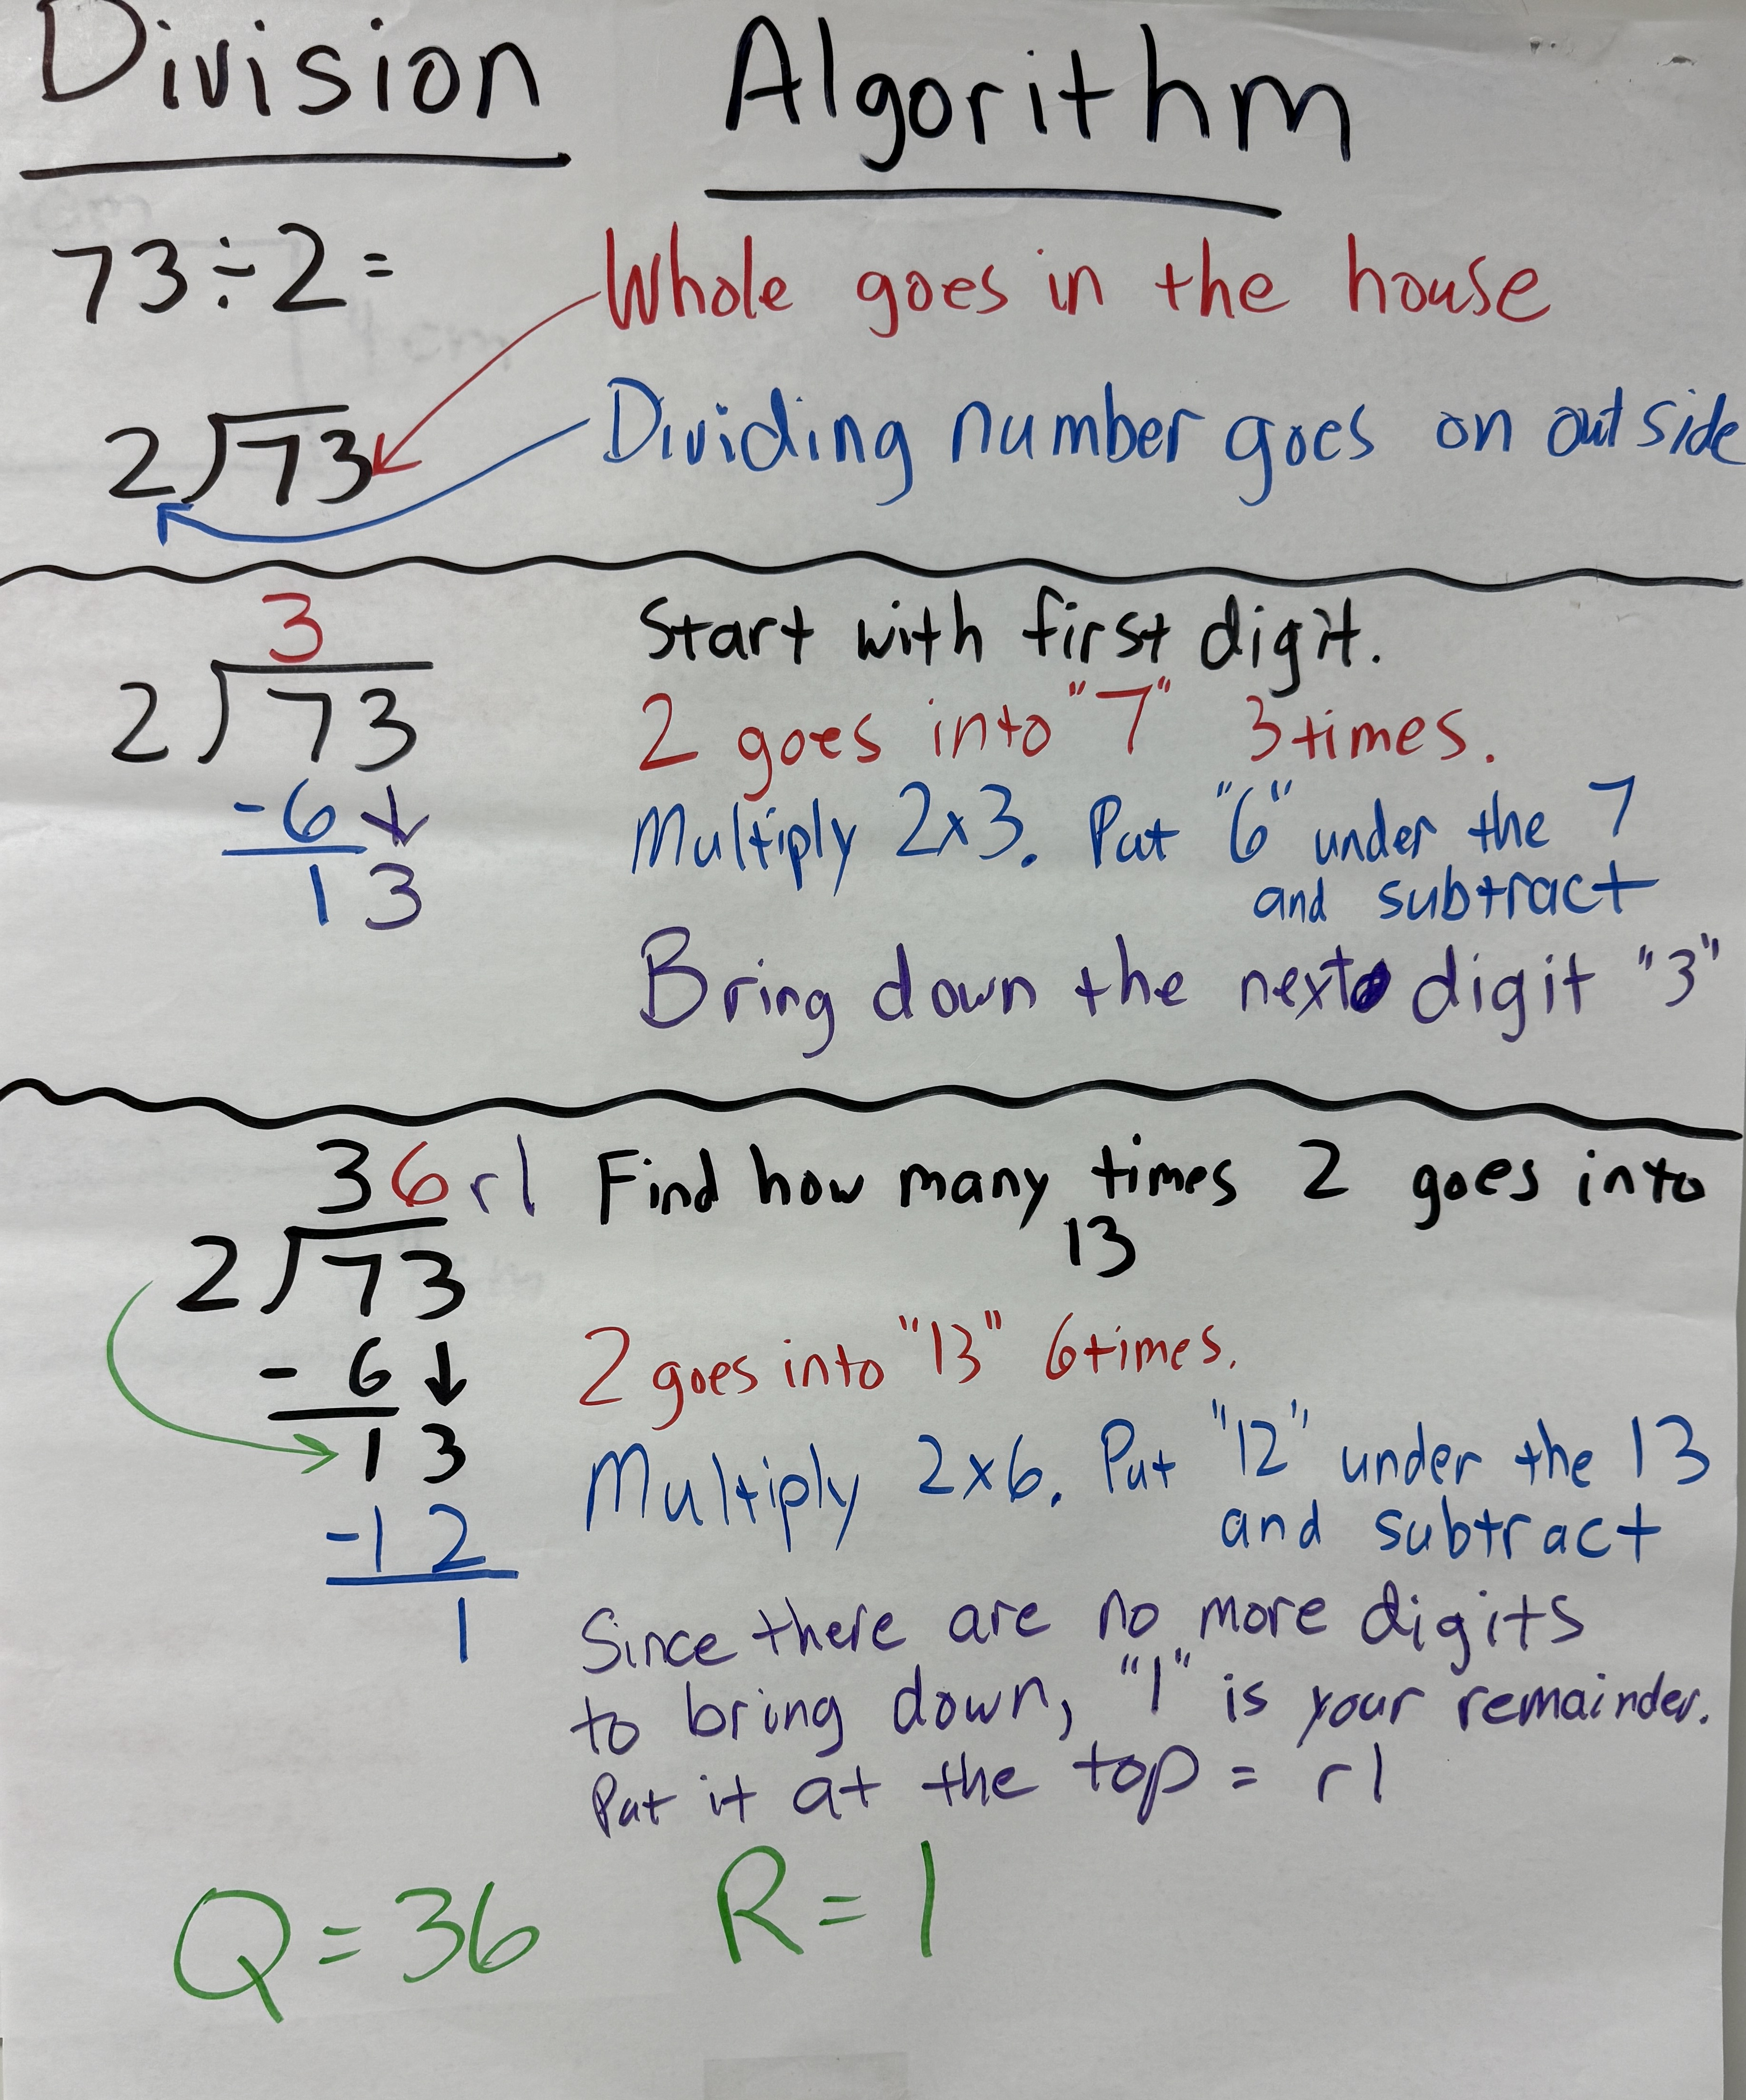 Division Algorithm
73÷2=
Whole goes in the house
Dividing number goes on outside
2 73
3
2 73
-6
13
Start with first digit.
2 goes into "7" 3 times.
Multiply 2x3. Put "6" under the 7
and subtract
Bring down the next digit "3"
36 r1
2 73
- 6
13
-12
1
Find how many times 2 goes into
13
2 goes into "13" 6 times.
Multiply 2x6. Put "12" under the 13
and subtract
Since there are no more digits
to bring down, "1" is your remainder.
Put it at the top = r1
Q=36 R=1